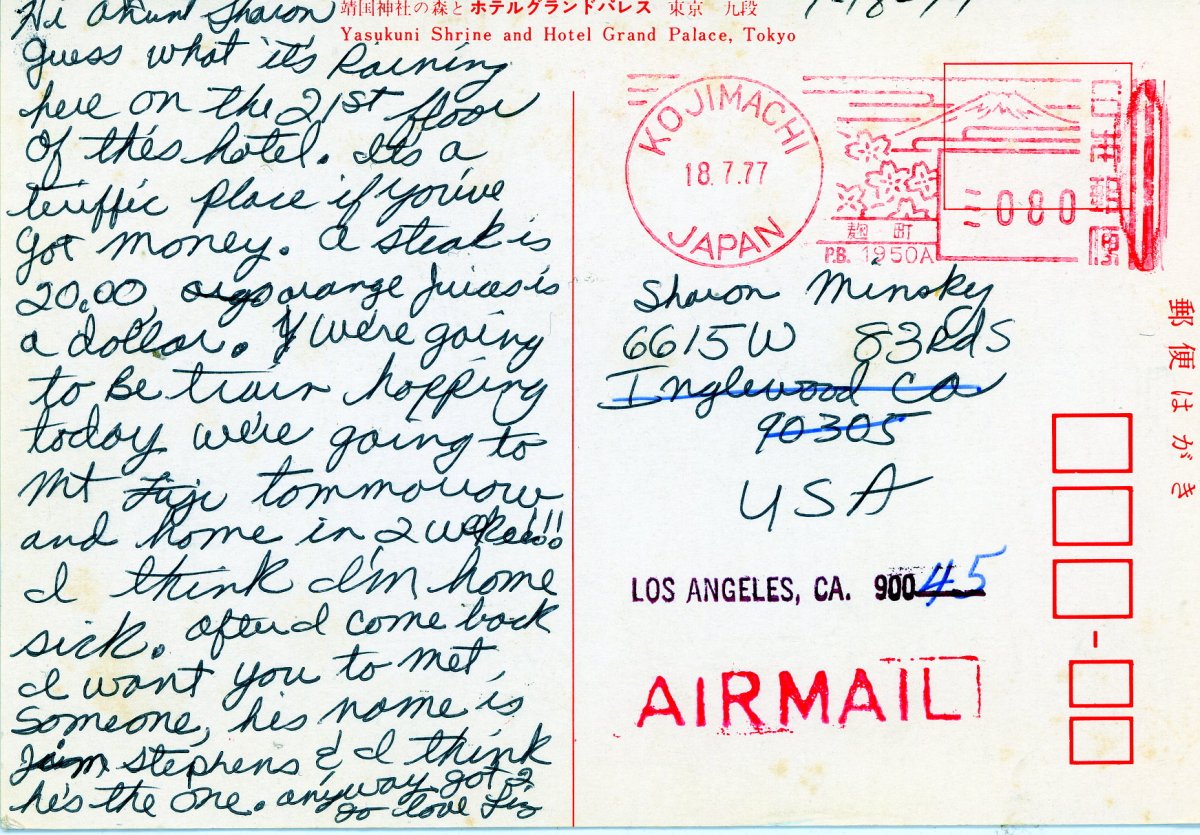 Hi Aunt Sharon
靖国神社の森とホテルグランドパレス 東京 九段
Yasukuni Shrine and Hotel Grand Palace, Tokyo
7-18-77
guess what it's Raining
here on the 21st floor
of this hotel. Its a
teriffic place if you've
got money. a steak is
20.00, orange Juices is
a dollar. We're going
to Be train hopping
today we're going to
Mt Fuji tommorrow
and home in 2 weeks!!!
I think I'm home
sick. after I come back
I want you to met,
Someone, his name is
Jim Stephens & I think
he's the one. anyway got 2
go love Liz
KOJIMACHI
18.7.77
JAPAN
麹町
P.B. 1950A
080
日本郵便
Sharon Minsky
6615 W 83Rd S
Inglewood CA
90305
USA
LOS ANGELES, CA. 90045
AIRMAIL
郵便はがき